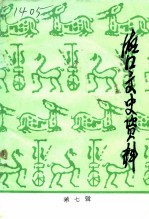 1405
口文史资料
第七辑